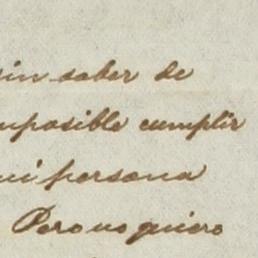 sin saber de
imposible cumplir
mi persona
Pero no quiero